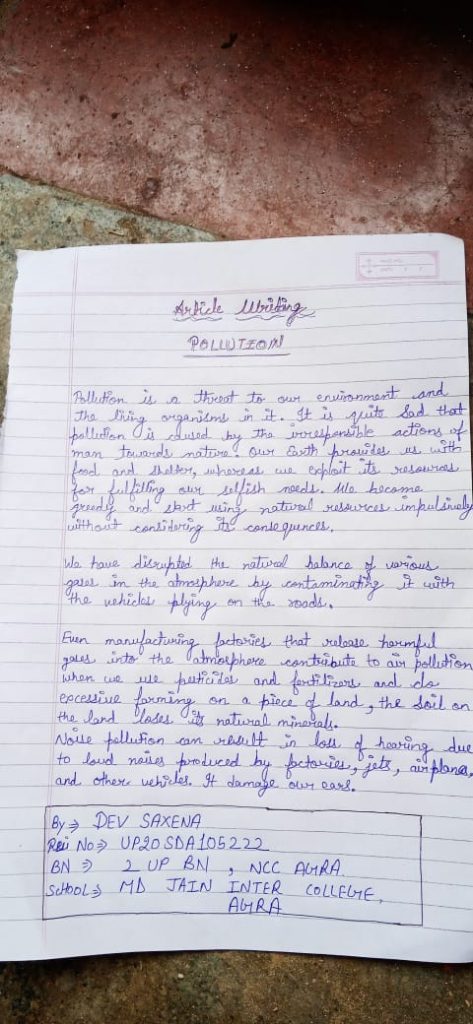 Article Writing
POLLUTION
Pollution is a threat to our environment and
the living organisms in it. It is quite sad that
pollution is caused by the irresponsible actions of
man towards nature. Our Earth provides us with
food and shelter, whereas we exploit its resources
for fulfilling our selfish needs. We become
greedy and start using natural resources impulsively
without considering its consequences.
We have disrupted the natural balance of various
gases in the atmosphere by contaminating it with
the vehicles plying on the roads.
Even manufacturing factories that release harmful
gases into the atmosphere contribute to air pollution
when we use pesticides and fertilizers and do
excessive farming on a piece of land, the soil on
the land loses its natural minerals.
Noise pollution can result in loss of hearing due
to loud noises produced by factories, jets, airplanes,
and other vehicles. It damage our ears.
By → DEV SAXENA
No → UP20SDA105222
BN → 2 UP BN, NCC AGRA.
School → MD JAIN INTER COLLEGE,
AGRA